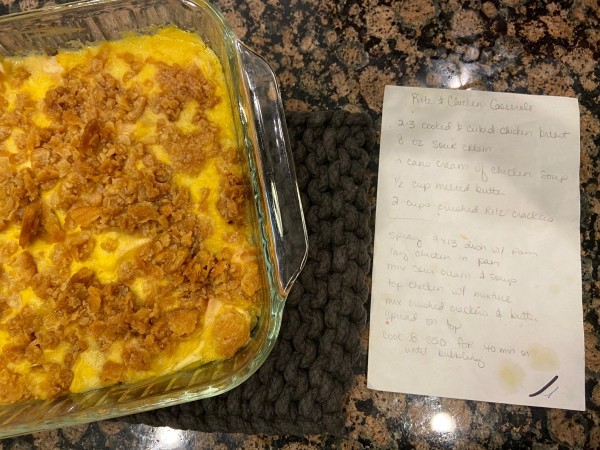 Ritz & Chicken Casserole
2-3 cooked & cubed chicken breast
8 oz sour cream
cans cream of chicken soup
1/2 cup melted butter
2 cups crushed Ritz crackers
spray 9x13 dish w/ pam
lay chicken in pan
mix sour cream & soup
top chicken w/ mixture
mix crushed crackers & butter
spread on top
cook @ 350 for 40 min or
until bubbling